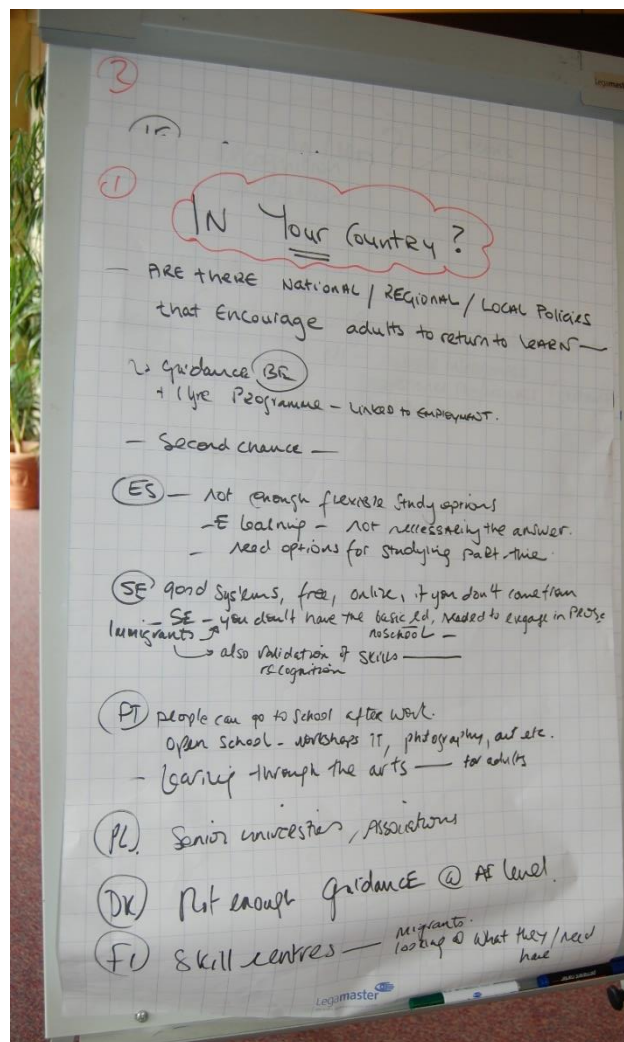 3
①
IN Your Country?
— ARE there NATIONAL / REGIONAL / LOCAL Policies
that Encourage adults to return to LEARN —
↳ Guidance BE
+ 1 yre Programme – LINKED to EMPLOYMENT.
– Second chance —
ES — not enough flexible study options
– E learning – not necessarily the answer.
– need options for studying part-time.
SE good systems, free, online, if you don't come from
– SE – you don't have the basic ed, needed to engage in
Immigrants
no school –
↳ also validation of skills —
recognition
PT people can go to school after work.
Open School – workshops IT, photography, art etc.
– through the arts — for adults
PL. Senior universities, Associations
DK Not enough guidance @ AE level.
FI Skill centres — Migrants.
looking @ what they / need
have
Legamaster